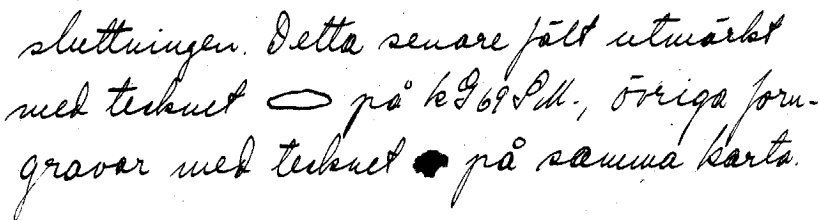 sluttningen. Detta senare fält utmärkt
med tecknet på kG69SM., övriga forn-
gravar med tecknet på samma karta.